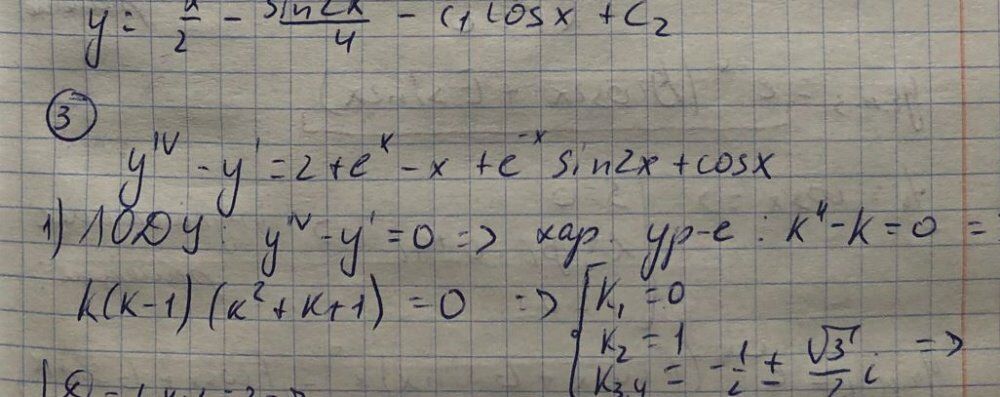 y = x/2 - sin2x/4 - C₁ cosx + C₂
③
y^IV - y' = 2 + e^x - x + e^-x sin2x + cosx
1) ЛОДУ: y^IV - y' = 0 => хар. ур-е: k⁴ - k = 0 =
k(k-1)(k²+k+1) = 0 => [k₁ = 0
k₂ = 1
k₃,₄ = -1/2 ± √3/2 i =>